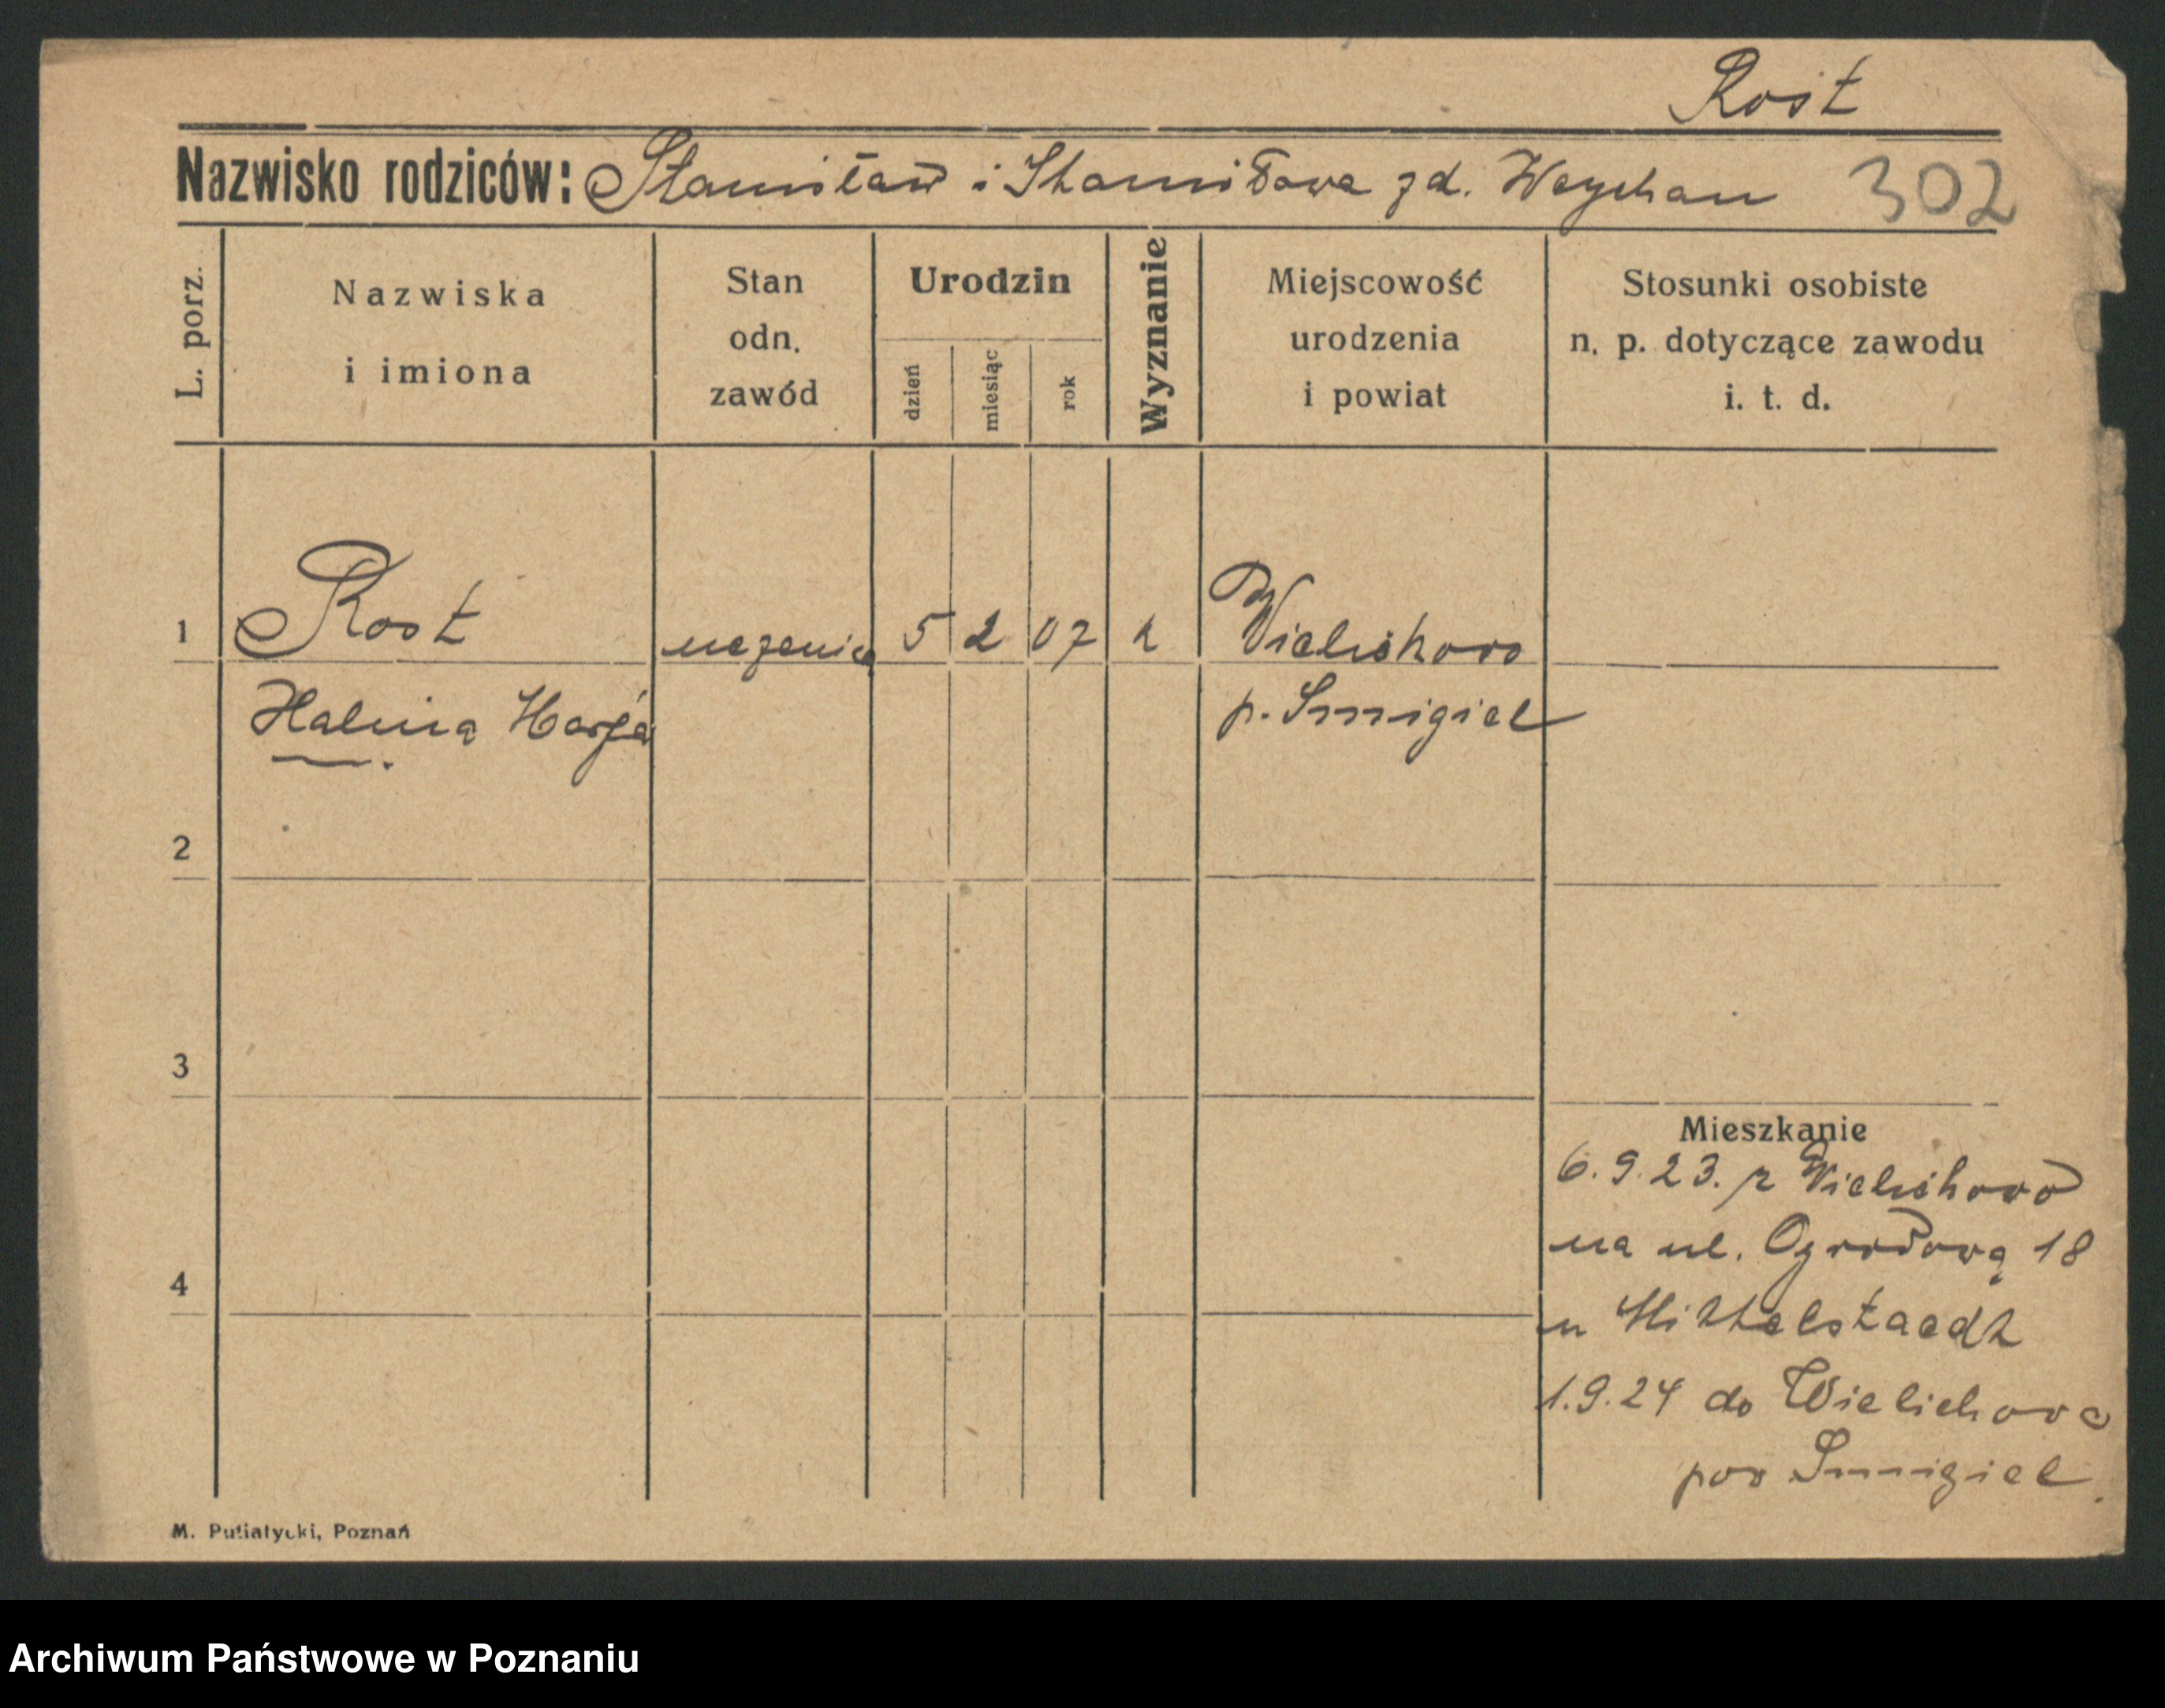 Rost
Nazwisko rodziców: Stanisław i zd. Weychan 302
L. porz.
Nazwiska
i imiona
Stan
odn.
zawód
Urodzin
dzień
miesiąc
rok
Wyznanie
Miejscowość
urodzenia
i powiat
Stosunki osobiste
n. p. dotyczące zawodu
i. t. d.
1 Rost uczenica 5 2 07 k Wielichowo
Halina p. Smigiel
2
3
Mieszkanie
6.9.23. z Wielichowo
na ul. Ogrodową 18
4
u
1.9.24 do Wielichowo
pow Smigiel
M. Putiatycki, Poznań
Archiwum Państwowe w Poznaniu